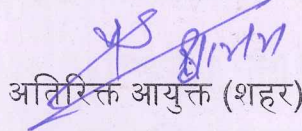 अतिरिक्त आयुक्त (शहर)